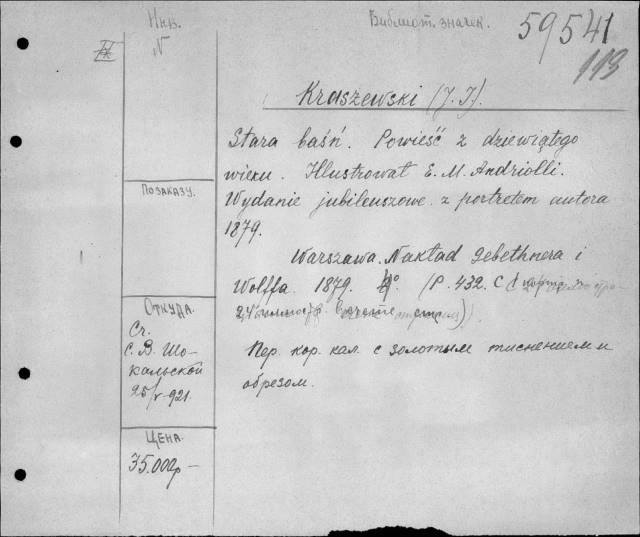 Инв.
N
Библиот. значек.
59541
113
Kraszewski (J. I).
Stara baśń. Powieść z dziewiątego
wieku. Illustrował E. M. Andriolli.
Wydanie jubileuszowe z portretem autora
1879.
Warszawa. Nakład Gebethnera i
Wolffa. 1879. 4° (P. 432. С
24
Пер. кор. кал. с золотым тиснением и
обрезом.
По заказу.
Откуда.
Ст.
С. В. Шо-
кальской
25/V-921.
Цена.
35.000р-